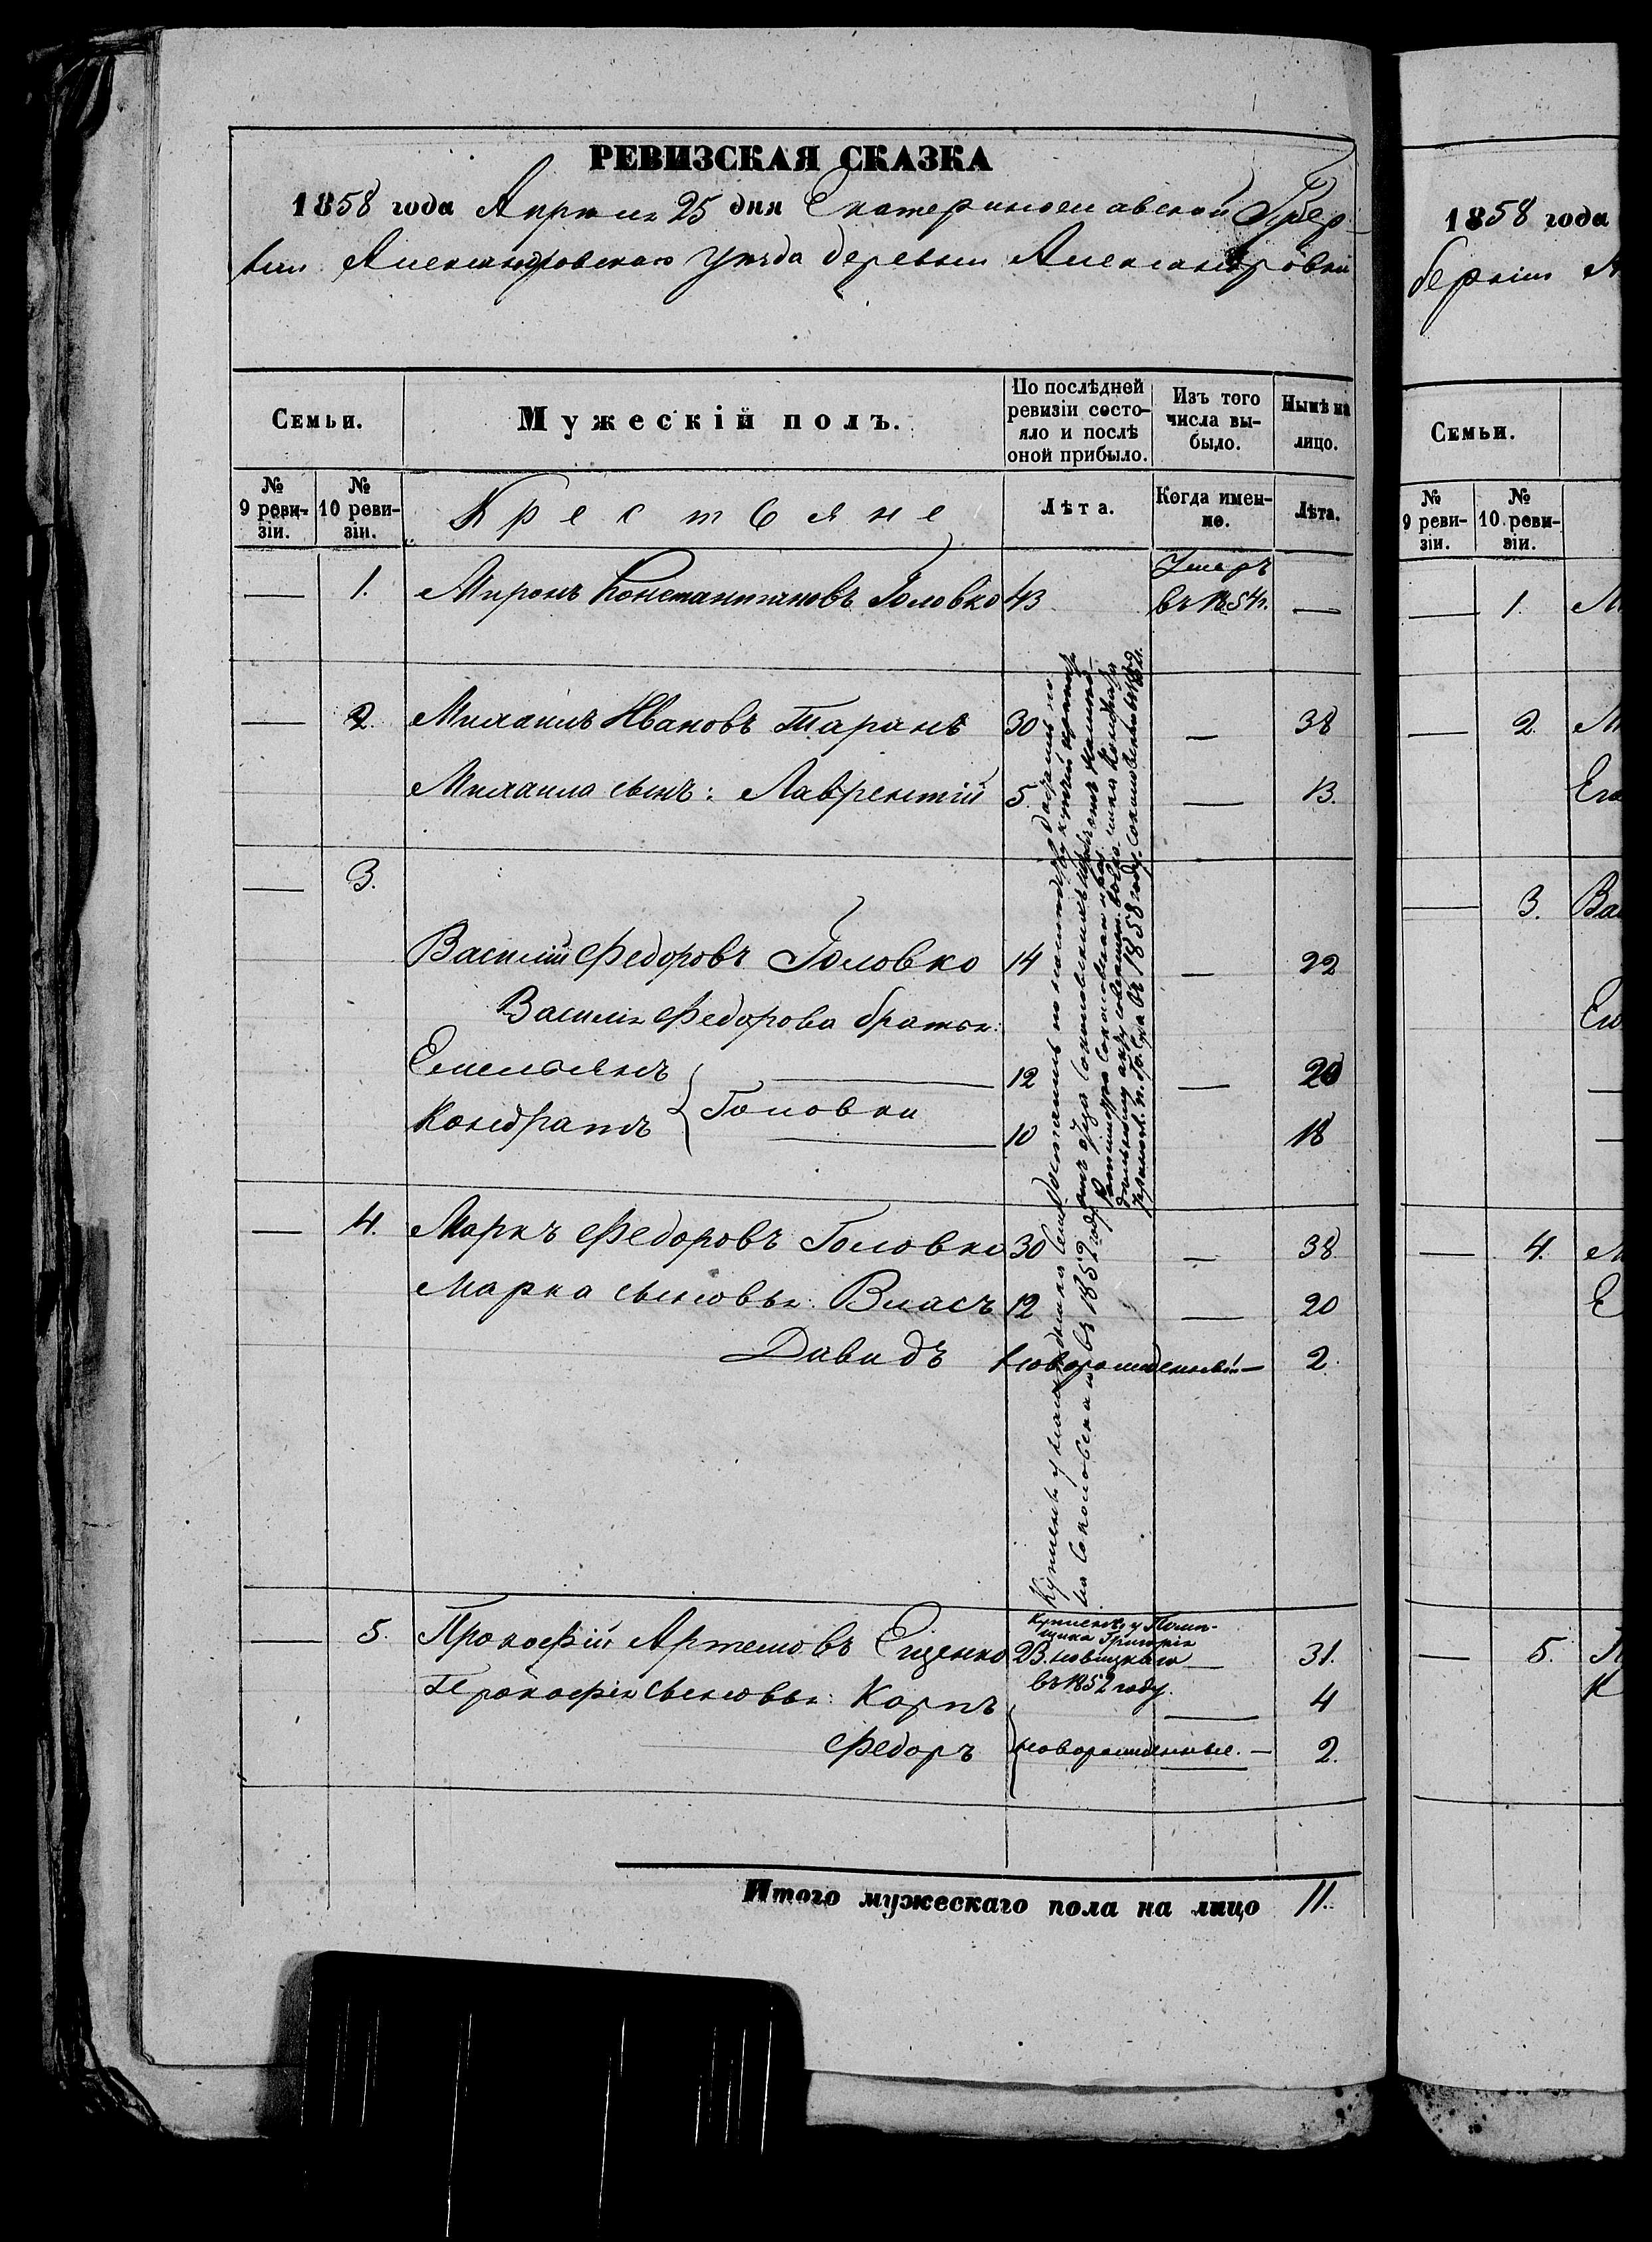 РЕВИЗСКАЯ СКАЗКА
1858 года Апреля 25 дня Екатеринославской Губер-
ніи Александровскаго уѣзда деревни Александровки
Семьи.
Мужескій полъ.
По послѣдней ревизіи состо-
яло и послѣ
оной прибыло.
Изъ того
числа вы-
было.
Нынѣ на
лицо.
№
9 реви-
зіи.
№
10 реви-
зіи.
Крестьяне
Лѣта.
Когда имен-
но.
Лѣта.
— 1. Миронъ Константиновъ Головко 43 Умеръ въ 1854г. —
— 2. Михаилъ Ивановъ Таранъ 30 — 38
Михаила сынъ: Лаврентій 5. — 13.
— 3.
Василій Федоровъ Головко 14 — 22
Василія Федорова братья:
Емельянъ 12 — 20
Кондратъ } Головки 10 18
— 4. Маркъ Федоровъ Головко 30 — 38
Марка сыновья: Власъ 12 — 20
Давидъ новорожденный — 2.
въ 1852 году
въ 1858 году
— 5. Прокофій Артемовъ Ещенко 23. — 31.
Куплены у Помѣ-
щика Григорія
Новицкаго
въ 1852 году.
Прокофія сыновья: Карпъ — 4
Федоръ } новорожденные. — 2.
Итого мужескаго пола на лицо 11.
1858 года
берніи А
Семьи.
№
9 реви-
зіи.
№
10 реви-
зіи.
— 1. М
— 2. М
Его
— 3. Ва
— 4. М
Е
— 5. П
К